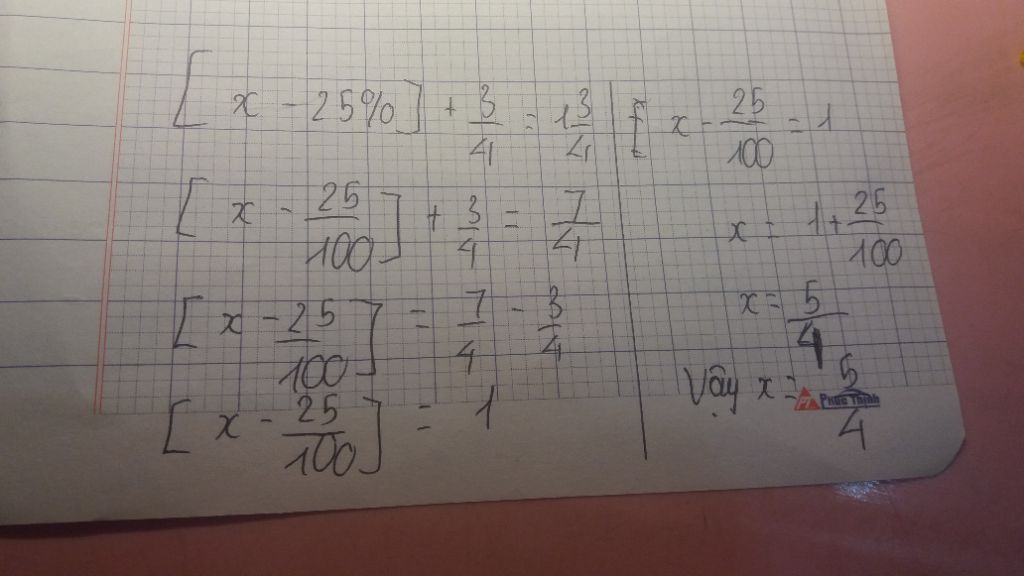 [ x - 25% ] + 3/4 = 1 3/4
[ x - 25/100 ] + 3/4 = 7/4
[ x - 25/100 ] = 7/4 - 3/4
[ x - 25/100 ] = 1
[ x - 25/100 = 1
x = 1 + 25/100
x = 5/4
Vậy x = 5/4
PT Phúc Thịnh